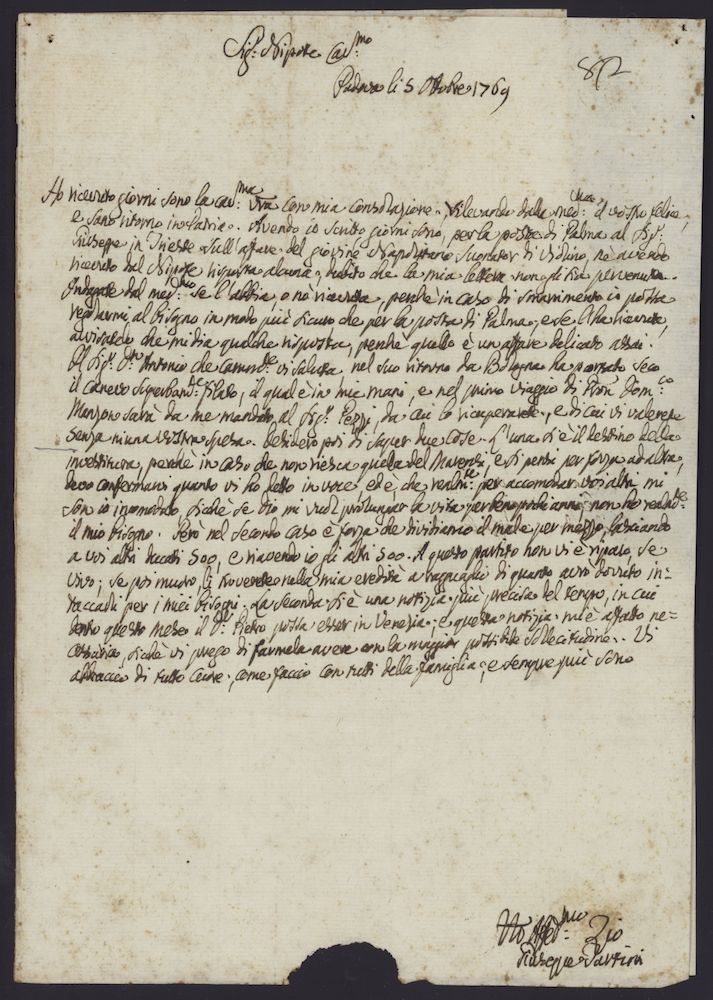 Sig.r Nipote Car.mo
82
Padova li 5 Ottobre 1769
Ho ricevuto giorni sono la car.ma v̄ra con mia consolazione, rilevando dalla med.ma il vostro felice,
e sano ritorno in Patria. Avendo io scritto giorni sono, per la posta di Palma al Sig.r
Giuseppe in Trieste sull'affare del giovine Napolitano Suonator di Violino, nè avendo
ricevuto dal Nipote risposta alcuna, dubito che la mia lettera non gli sia pervenuta.
Indagate dal med.mo se l'abbia, o nò ricevuta, perchè in caso di smarrimento io possa
regolarmi al bisogno in modo più sicuro che per la posta di Palma; e se l'ha ricevuta,
avvisatelo che mi dia qualche risposta, perchè quello è un affare delicato assai.
Il Sig.r D.n Antonio che caram.te vi saluta nel suo ritorno da Bologna ha portato seco
il Canevo Superband.e filato, il qual è in mie mani, e nel primo viaggio di Pron Dom.co
Manzon sarà da me mandato al Sig.r Pezzi, da cui lo ricuperarete, e di cui vi valerete
senza niuna vostra spesa. Desidero poi di saper due cose. L'una si è il destino della
investitura, perchè in caso che non riesca quella del Maventi, e si pensi per forza ad altra,
devo confermarvi quanto vi ho detto in voce, ed è, che realm.te per accomodar voi altri, mi
son io incomodato, sichè se Dio mi vuol prolungar la vita per ben pochi anni, non ho realm.te
il mio bisogno. Però nel secondo caso è forza che dividiamo il male per mezzo, lasciando
a voi altri ducati 500, e riavendo io gli altri 500. A questo partito non vi è riparo, se
vivo; se poi muoro li troverete nella mia eredità a ragguaglio di quanto avrò dovuto in-
taccarli per i miei bisogni. La seconda si è una notizia più precisa del tempo, in cui
dentro questo mese il D.r Pietro possa esser in Venezia; e questa notizia mi è affatto ne-
cessaria, sichè vi prego di farmela avere con la maggior possibile sollecitudine. Vi
abbraccio di tutto cuore, come faccio con tutti della famiglia, e sempre più sono
Vro Aff.mo Zio
Giuseppe Tartini